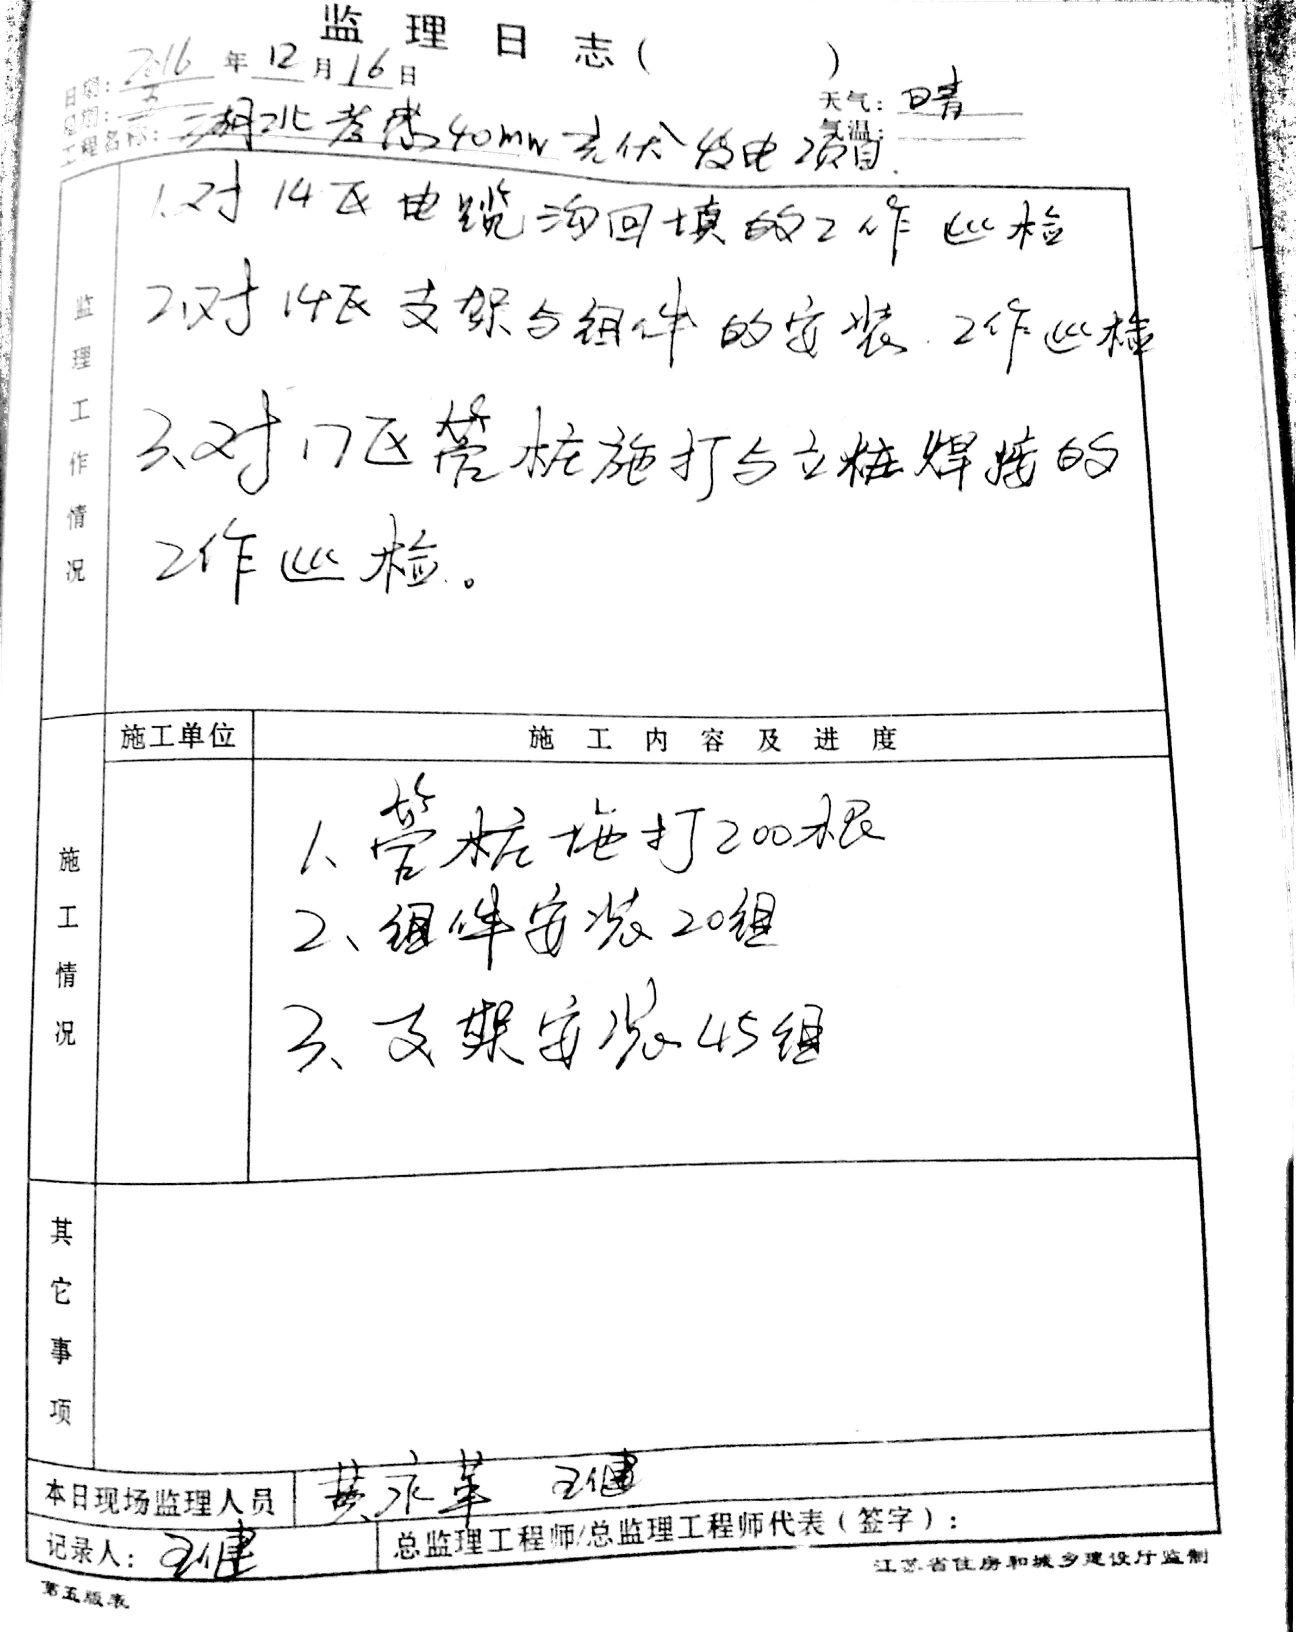 监理日志（ ）
日期：2016年12月16日
天气：晴
星期：五
气温：
工程名称：湖北孝感40mw光伏发电项目.
监理工作情况
1.对14区电缆沟回填的工作巡检
2.对14区支架与组件的安装.工作巡检
3、对17区管桩施打与立桩焊接的
工作巡检。
施工单位
施工内容及进度
施工情况
1、管桩施打200根
2、组件安装20组
3、支架安装45组
其它事项
本日现场监理人员 黄永革 王健
记录人：王健
总监理工程师/总监理工程师代表（签字）：
第五版表
江苏省住房和城乡建设厅监制